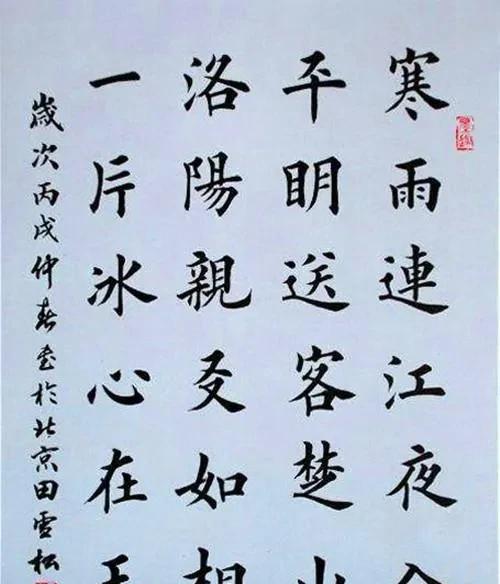 寒雨連江夜入
平明送客楚山
洛陽親友如相
一片冰心在玉
歲次丙戌仲春書於北京田雪松